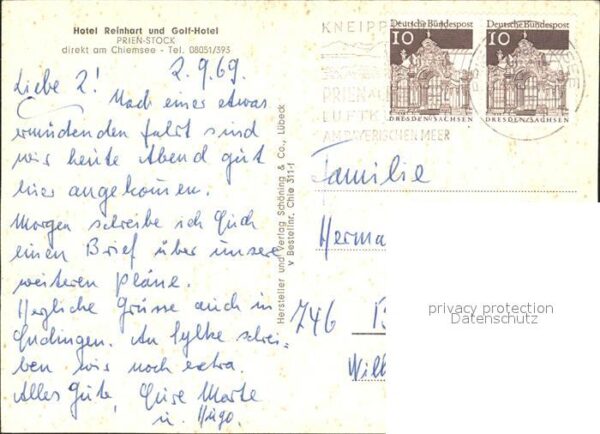 Hotel Reinhart und Golf-Hotel
PRIEN-STOCK
direkt am Chiemsee - Tel. 08051/393
Liebe 2! 2.9.69.
Nach einer etwas
ermüdenden Fahrt sind
wir heute Abend gut
hier angekommen.
Morgen schreibe ich Euch
einen Brief über unsere
weiteren Pläne.
Herzliche Grüsse auch in
Endingen. An Sylke schrei-
ben wir noch extra.
Alles Gute, Eure Marte
u. Hugo.
Hersteller und Verlag Schöning & Co., Lübeck
v Bestellnr. Chie 311-f
KNEIPP
PRIEN A.
LUFTK
AM BAYERISCHEN MEER
Deutsche Bundespost
10
DRESDEN/SACHSEN
Deutsche Bundespost
10
DRESDEN/SACHSEN
Familie
Herma
746
Wilh
privacy protection
Datenschutz